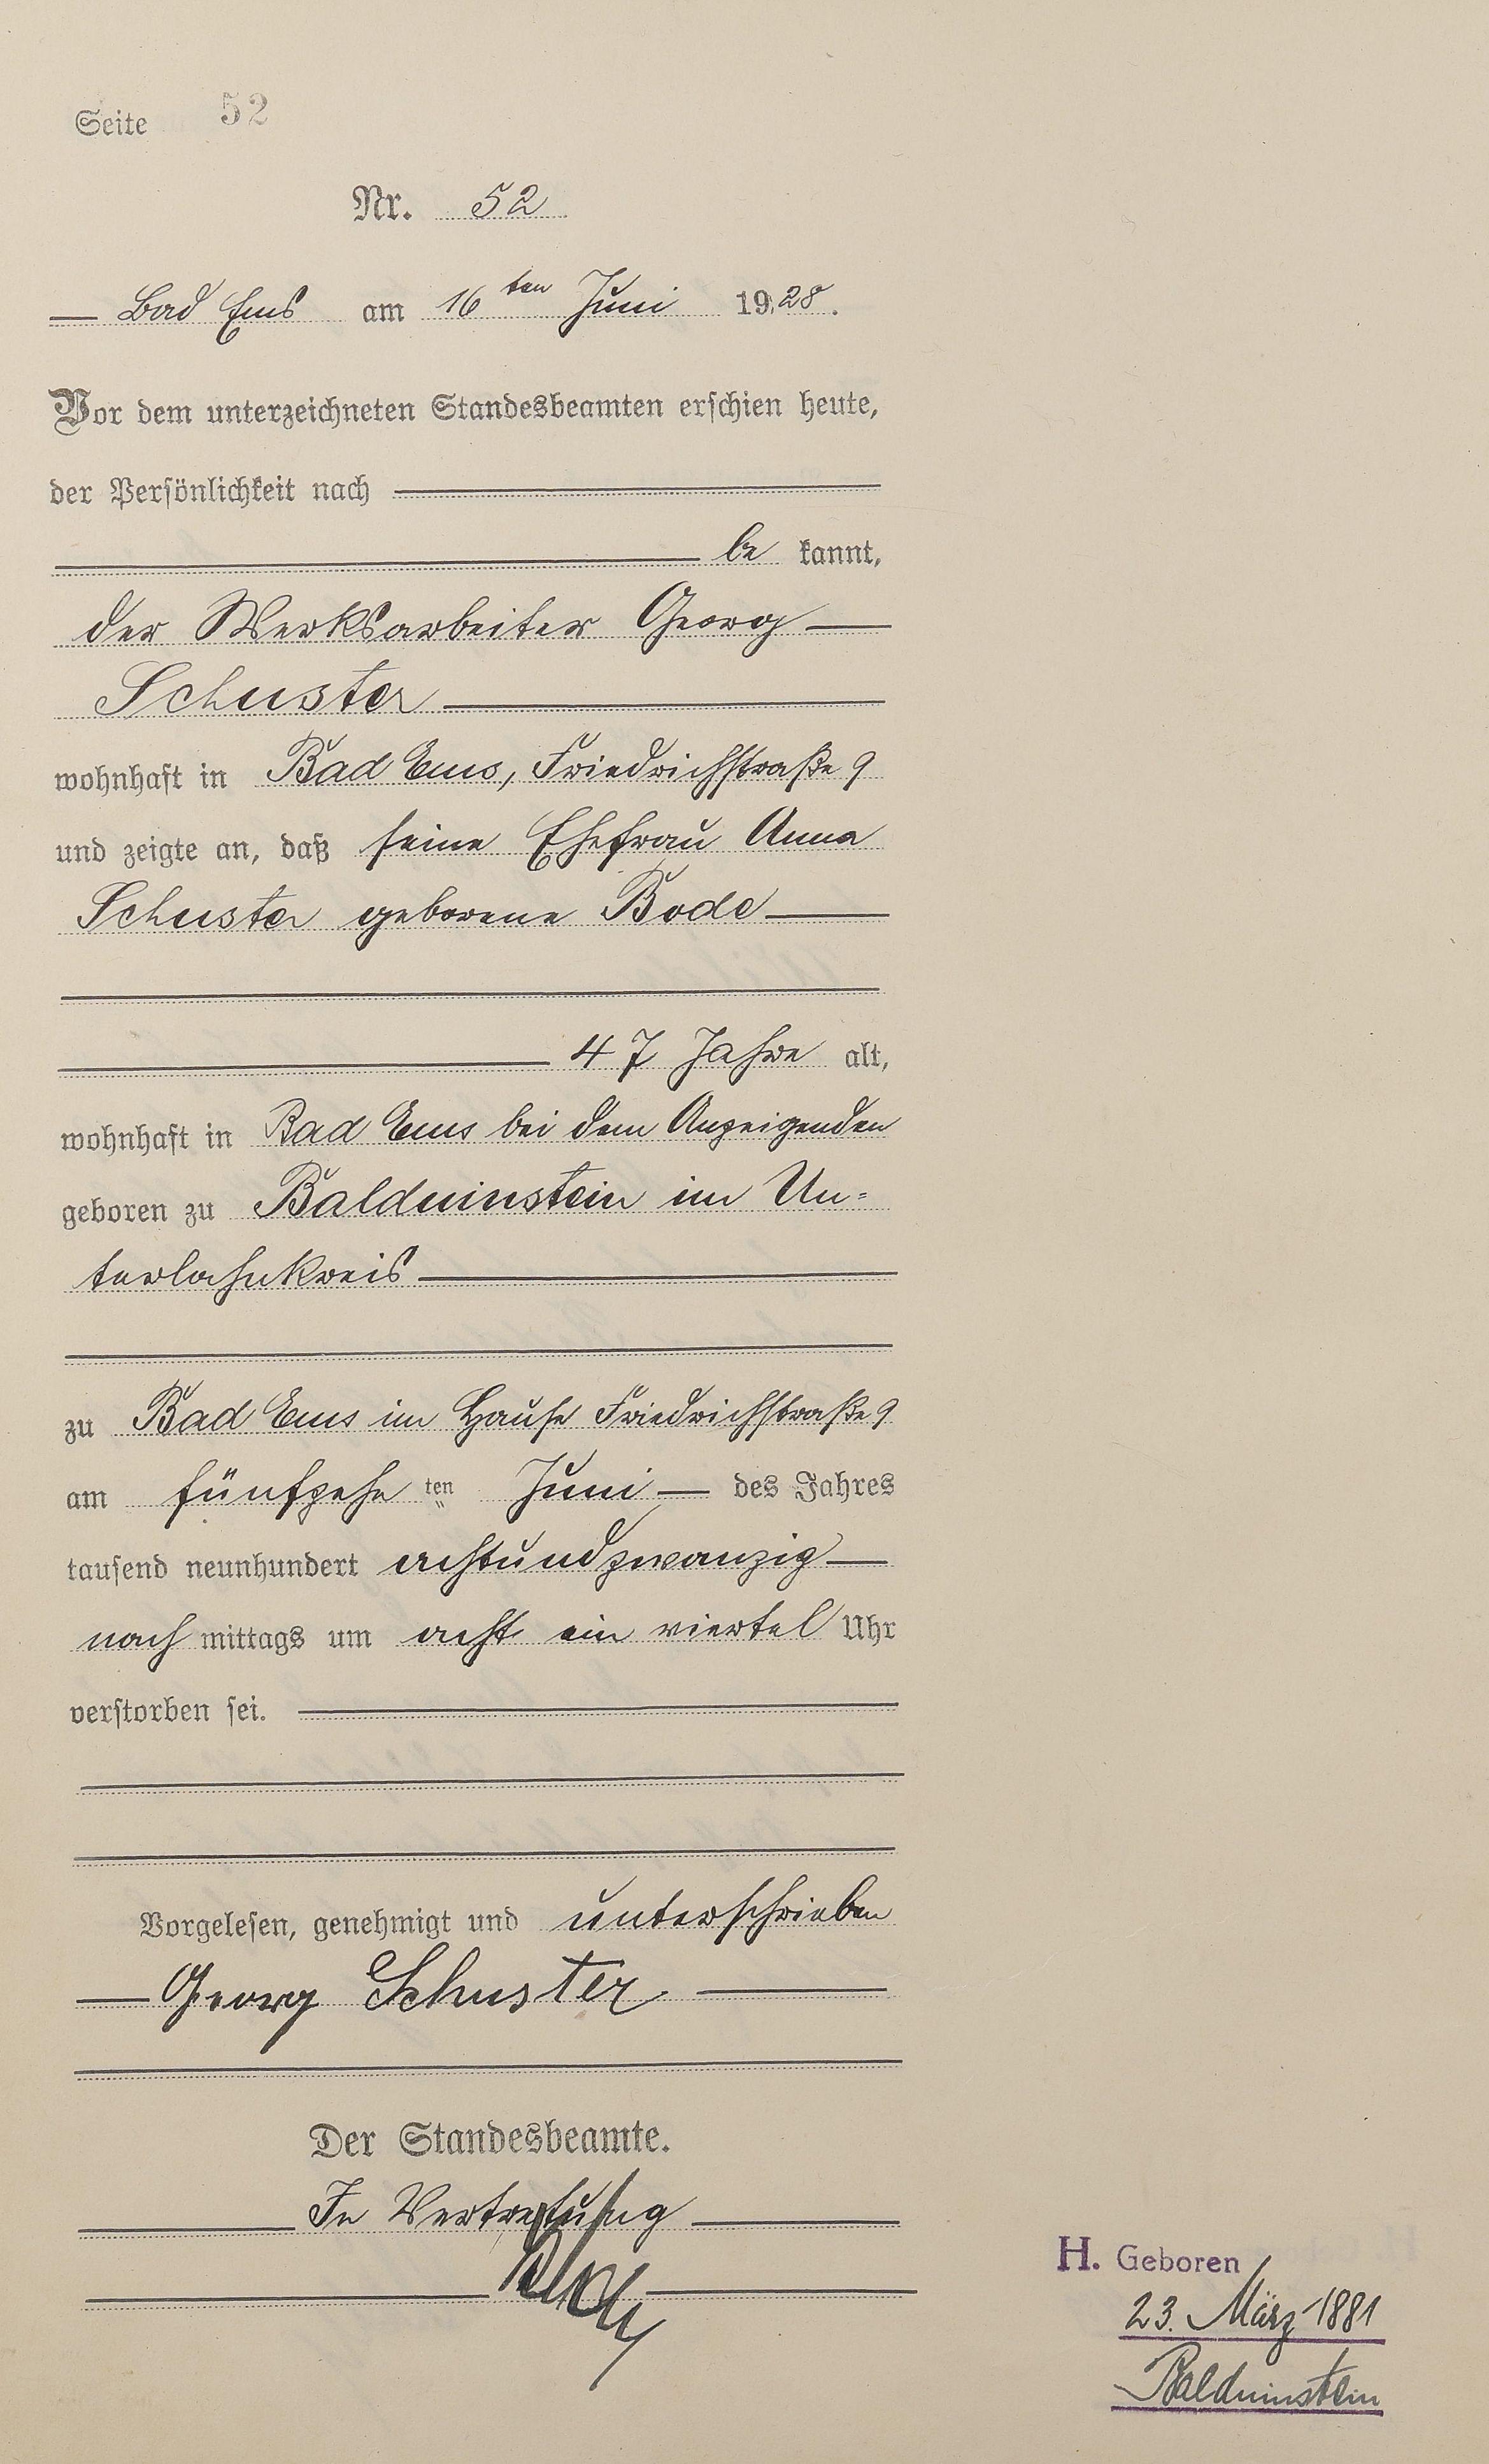 Seite 52
Nr. 52
Bad Ems am 16ten Juni 1928.
Vor dem unterzeichneten Standesbeamten erschien heute,
der Persönlichkeit nach
be kannt,
der Werksarbeiter Georg
Schuster
wohnhaft in Bad Ems, Friedrichstraße 9
und zeigte an, daß seine Ehefrau Anna
Schuster geborene Bode
47 Jahre alt,
wohnhaft in Bad Ems bei dem Anzeigenden
geboren zu Balduinstein im Un=
terlahnkreis
zu Bad Ems im Hause Friedrichstraße 9
am fünfzehn ten Juni des Jahres
tausend neunhundert achtundzwanzig
nach mittags um acht ein viertel Uhr
verstorben sei.
Vorgelesen, genehmigt und unterschrieben
Georg Schuster
Der Standesbeamte.
In Vertretung
H. Geboren
23. März 1881
Balduinstein